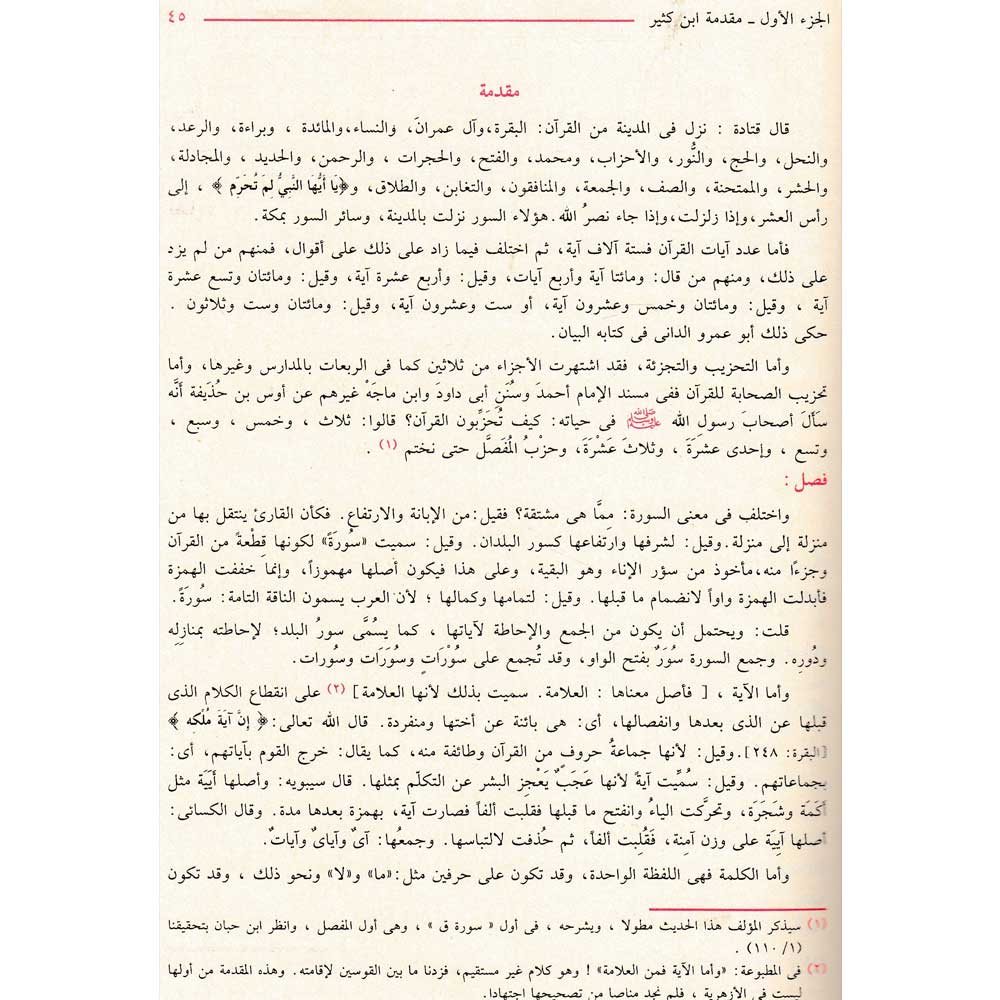 الجزء الأول ـ مقدمة ابن كثير ٤٥
مقدمة
قال قتادة : نزل فى المدينة من القرآن: البقرة،وآل عمرانَ، والنساء،والمائدة ، وبراءة، والرعد،
والنحل، والحج، والنُّور، والأحزاب، ومحمد، والفتح، والحجرات ، والرحمن، والحديد ، والمجادلة،
والحشر، والممتحنة، والصف، والجمعة، والمنافقون، والتغابن، والطلاق، و﴿يَا أَيُّهَا النَّبِيُّ لِمَ تُحَرِّم ﴾ ، إلى
رأس العشر،وإذا زلزلت،وإذا جاء نصرُ الله. هؤلاء السور نزلت بالمدينة، وسائر السور بمكة.
فأما عدد آيات القرآن فستة آلاف آية، ثم اختلف فيما زاد على ذلك على أقوال، فمنهم من لم يزد
على ذلك، ومنهم من قال: ومائتا آية وأربع آيات، وقيل: وأربع عشرة آية، وقيل: ومائتان وتسع عشرة
آية ، وقيل: ومائتان وخمس وعشرون آية، أو ست وعشرون آية، وقيل: ومائتان وست وثلاثون .
حكى ذلك أبو عمرو الدانى فى كتابه البيان.
وأما التحزيب والتجزئة، فقد اشتهرت الأجزاء من ثلاثين كما فى الربعات بالمدارس وغيرها، وأما
تحزيب الصحابة للقرآن ففى مسند الإمام أحمدَ وسُنَنِ أبى داودَ وابن ماجَهْ غيرهم عن أوس بن حُذَيفة أنَّه
سَأَلَ أصحابَ رسولِ الله ﷺ فى حياته: كيف تُحَزِّبون القرآن؟ قالوا: ثلاث ، وخمس ، وسبع ،
وتسع ، وإحدى عشرَةَ ، وثلاثَ عَشْرَةَ، وحزْبُ المُفَصَّل حتى نختم (١) .
فصل :
واختلف فى معنى السورة: مِمَّا هى مشتقة؟ فقيل:من الإبانة والارتفاع. فكأن القارئ ينتقل بها من
منزلة إلى منزلة.وقيل: لشرفها وارتفاعها كسور البلدان. وقيل: سميت «سُورَةً» لكونها قِطْعةً من القرآن
وجزءًا منه،مأخوذ من سؤر الإناء وهو البقية، وعلى هذا فيكون أصلها مهموزاً، وإنما خففت الهمزة
فأبدلت الهمزة واواً لانضمام ما قبلها. وقيل: لتمامها وكمالها ؛ لأن العرب يسمون الناقة التامة: سُورَةً.
قلت: ويحتمل أن يكون من الجمع والإحاطة لآياتها ، كما يسُمَّى سورُ البلد؛ لإحاطته بمنازلِه
ودُورِه. وجمع السورة سُوَرٌ بفتح الواو، وقد تُجمع على سُوْرَاتٍ وسُوَرَات وسُورات.
وأما الآية ، [ فأصل معناها : العلامة. سميت بذلك لأنها العلامة] (٢) على انقطاع الكلام الذى
قبلها عن الذى بعدها وانفصالها، أى: هى بائنة عن أختها ومنفردة. قال الله تعالى:﴿ إِنَّ آيَةَ مُلْكِه ﴾
[البقرة: ٢٤٨].وقيل: لأنها جماعةُ حروفٍ من القرآن وطائفة منه، كما يقال: خرج القوم بآياتهم، أى:
بجماعاتهم. وقيل: سُمِّيت آيةً لأنها عَجَبٌ يَعْجِز البشر عن التكلّم بمثلها. قال سيبويه: وأصلها أَيَيَة مثل
أكَمَة وشَجَرَة، وتحرَّكت الياءُ وانفتح ما قبلها فقلبت ألفاً فصارت آية، بهمزة بعدها مدة. وقال الكسائى:
أصلها آيِيَة على وزن آمنة، فَقُلِبت ألفاً، ثم حُذفت لالتباسها. وجمعُها: آىٌ وآياىٌ وآياتٌ.
وأما الكلمة فهى اللفظة الواحدة، وقد تكون على حرفين مثل:«ما» و«لا» ونحو ذلك ، وقد تكون
(١) سيذكر المؤلف هذا الحديث مطولا ، ويشرحه ، فى أول « سورة ق » ، وهى أول المفصل ، وانظر ابن حبان بتحقيقنا
(١١٠/١) .
(٢) فى المطبوعة: «وأما الآية فمن العلامة» ! وهو كلام غير مستقيم، فزدنا ما بين القوسين لإقامته. وهذه المقدمة من أولها
ليست فى الأزهرية ، فلم نجد مناصا من تصحيحها اجتهادا.